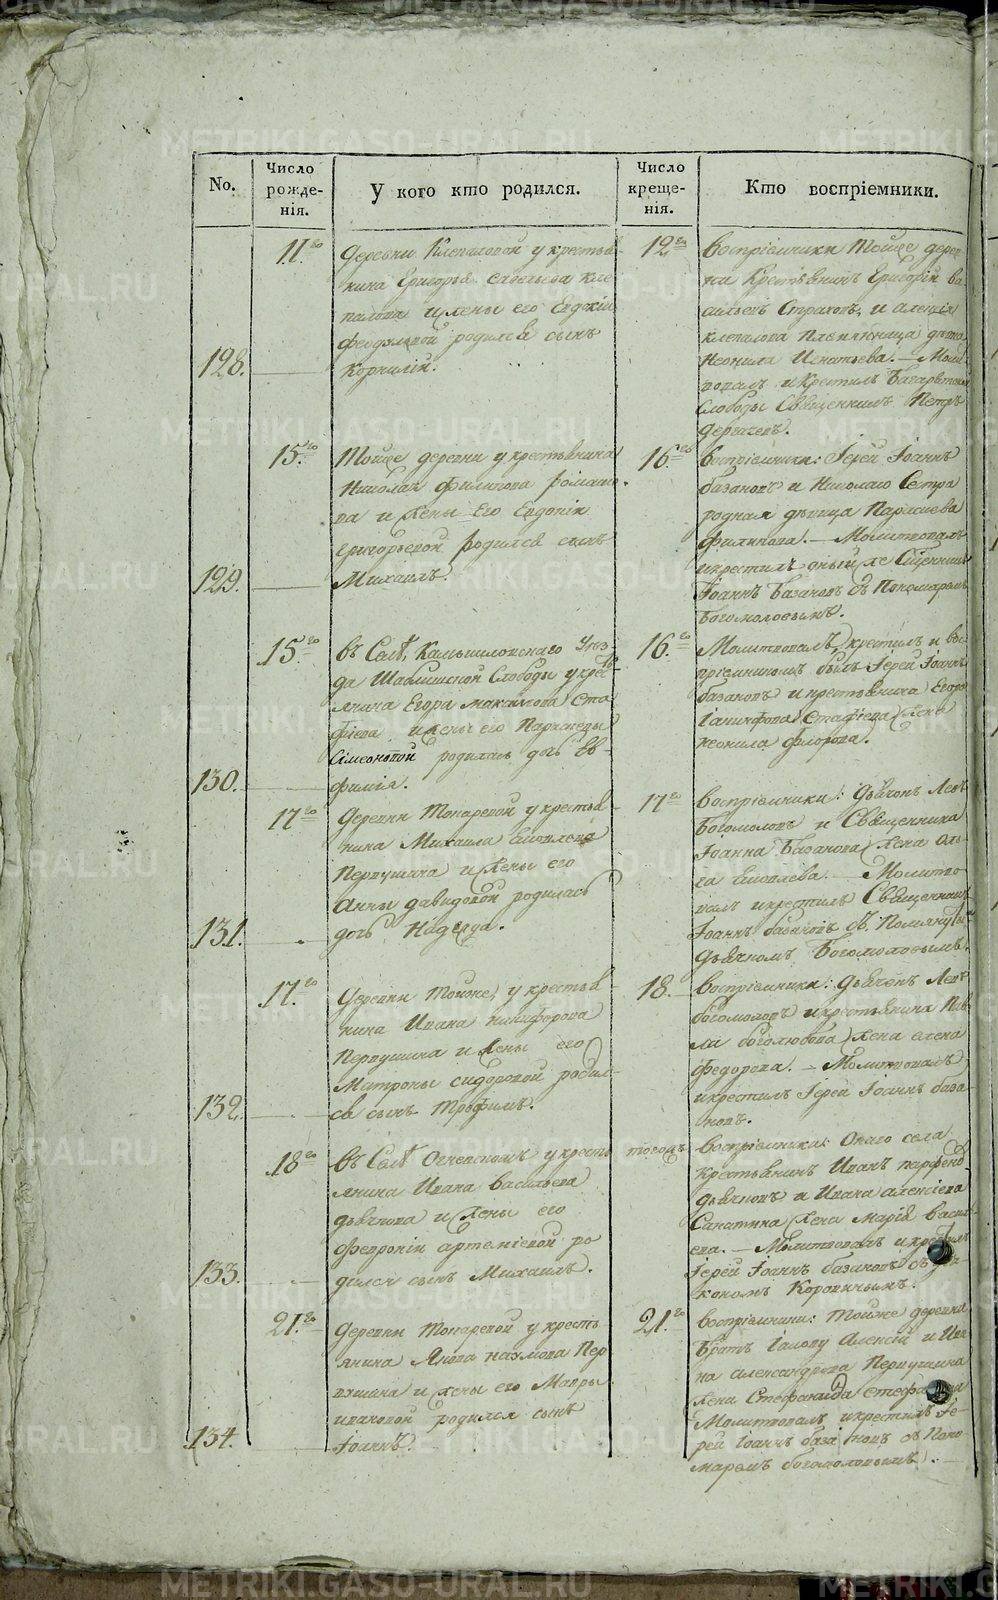 No.
Число рожде-нія.
У кого кто родился.
Число креще-нія.
Кто воспріемники.
128.
11го
Деревни Клепаловой у крестья
нина Григорья Савельева Кле
палова и жены его Евдокіи
родился сынъ
Корнилій.
12го
Воспріемники Тойже дерев
ни Крестьянинъ Григорій Ва
сильевъ и Алексія
Клепалова племянница девка
Неонила Игнатьева. — Моли
твовалъ и крестилъ Багарятской
Слободы Священникъ Петръ
129.
15го
Тойже деревни у крестьянина
Николая Филипова Романо
ва и жены Его Евдокіи
Григорьевой родился сынъ
Михаилъ.
16го
Воспріемники: Іерей Іоаннъ
Базановъ и Николаю Сестра
родная девица Парасиева
Филипова. — Молитвовалъ
и крестилъ оный же Священникъ
Іоаннъ Базановъ съ Пономаремъ
Богомоловымъ.
130.
15го
Въ Селѣ, Камышловскаго Уез
да Слободы у крес
янина Егора Максимова Ста
фіева и жены его
Сімеоновой родилась дочь Ев-
фимія.
16го
Молитвовалъ, крестилъ и вос
пріемникомъ былъ Іерей Іоаннъ
Базановъ и крестьянина Егора
Стафіева жена
Неонила Флорова.
131.
17го
Деревни Токаревой у крестья
нина Михаила Яковлева
Первушина и жены его
Анны Давидовой родилась
дочь Надежда.
17го
Воспріемники: дьячекъ Левъ
Богомоловъ и Священника
Іоанна Базанова жена Оль
га Яковлева. — Молитво
валъ и крестилъ Священникъ
Іоаннъ Базановъ съ Помянутымъ
дьячкомъ Богомоловымъ.
132.
17го
Деревни Тойже, у крестья
нина Ивана Никифорова
Первушина и жены его
Матроны Сидоровой родил-
ся сынъ Трофимъ.
18.
Воспріемники: дьячекъ Левъ
Богомоловъ и крестьянина Пав
ла Боголюбова жена Елена
Федорова. — Молитвовалъ
и крестилъ Іерей Іоаннъ База
новъ.
133.
18го
Въ Селѣ Огневскомъ у кресть
янина Ивана Васильева
Дьячкова и жены его
Февроніи Артеміевой ро
дился сынъ Михаилъ.
Воспріемники: Онаго села
крестьянинъ Иванъ Парфено
Дьячковъ и Ивана Алексіева
жена Марія Васил
ева. — Молитвовалъ и крестилъ
Іерей Іоаннъ Базановъ съ дья
кономъ
134.
21го
Деревни Токаревой у кресть
янина Якова Наумова Пер
вушина и жены его Мавры
Ивановой родился сынъ
Іоаннъ.
21го
Воспріемники: Тойже деревни
Братъ Іакову Алексій и Ива
на Александрова Первушина
жена Стефанида
Молитвовалъ и крестилъ Іе-
рей Іоаннъ Базановъ съ Поно
маремъ Богомоловымъ.
METRIKI.GASO-URAL.RU